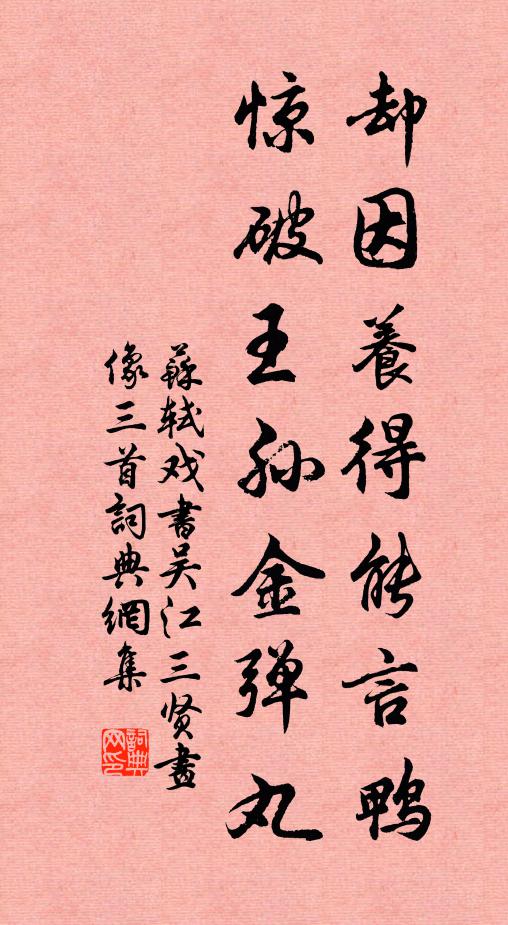 却因養得能言鸭
惊破王孙金弹丸
蘇轼戏書吴江三贤畫
像三首詞典網集
詞典网印